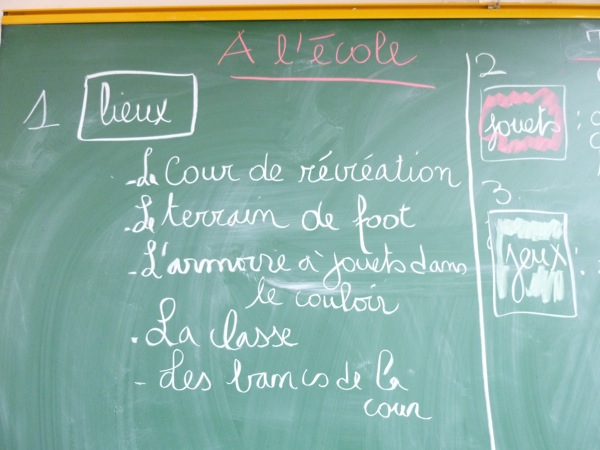 A l'école
1 lieux
- La Cour de récréation
- Le terrain de foot
- L'armoire à jouets dans
le couloir
- La classe
- Les bancs de la
cour
2
jouets :
3.
jeux :